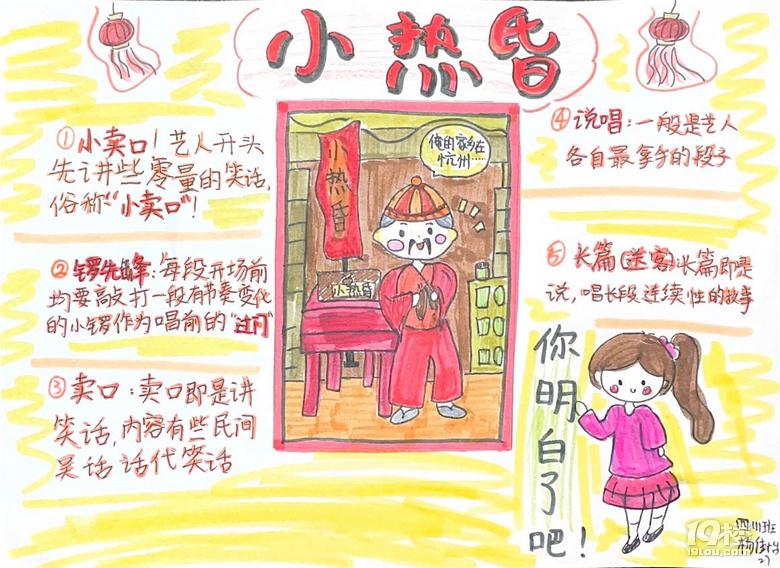 小热昏
①小卖口！艺人开头
先讲些零量的笑话,
俗称“小卖口”！
②锣先峰：每段开场前
均要敲打一段有节奏变化
的小锣作为唱前的“过门”
③卖口：卖口即是讲
笑话,内容有些民间
吴话话代笑话
小热昏
俺的家乡在
杭州……
小热昏
④说唱：一般是艺人
各自最拿手的段子
⑤长篇(送客)长篇即是
说,唱长段连续性的故事
你明白了吧！
四(1)班
杨佳怡
27
19楼
19LOU.COM